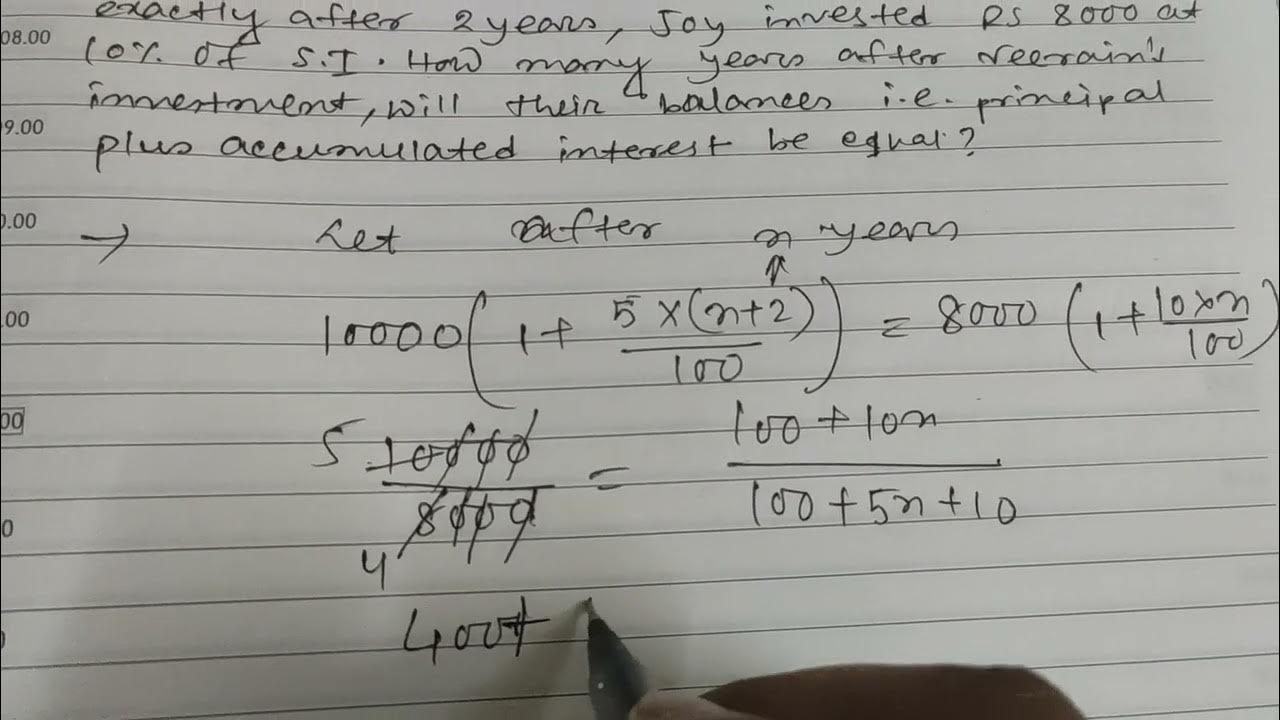 exactly after 2 years, Joy invested RS 8000 at
08.00
10% of S.I. How many years after Neerain's
investment, will their balances i.e. principal
09.00
plus accumulated interest be equal?
0.00
→ Let after n years
.00
10000(1 + 5×(n+2)/100) = 8000(1 + 10×n/100)
00
5 10000/8000 4 = 100+10n/100+5n+10
0
400+